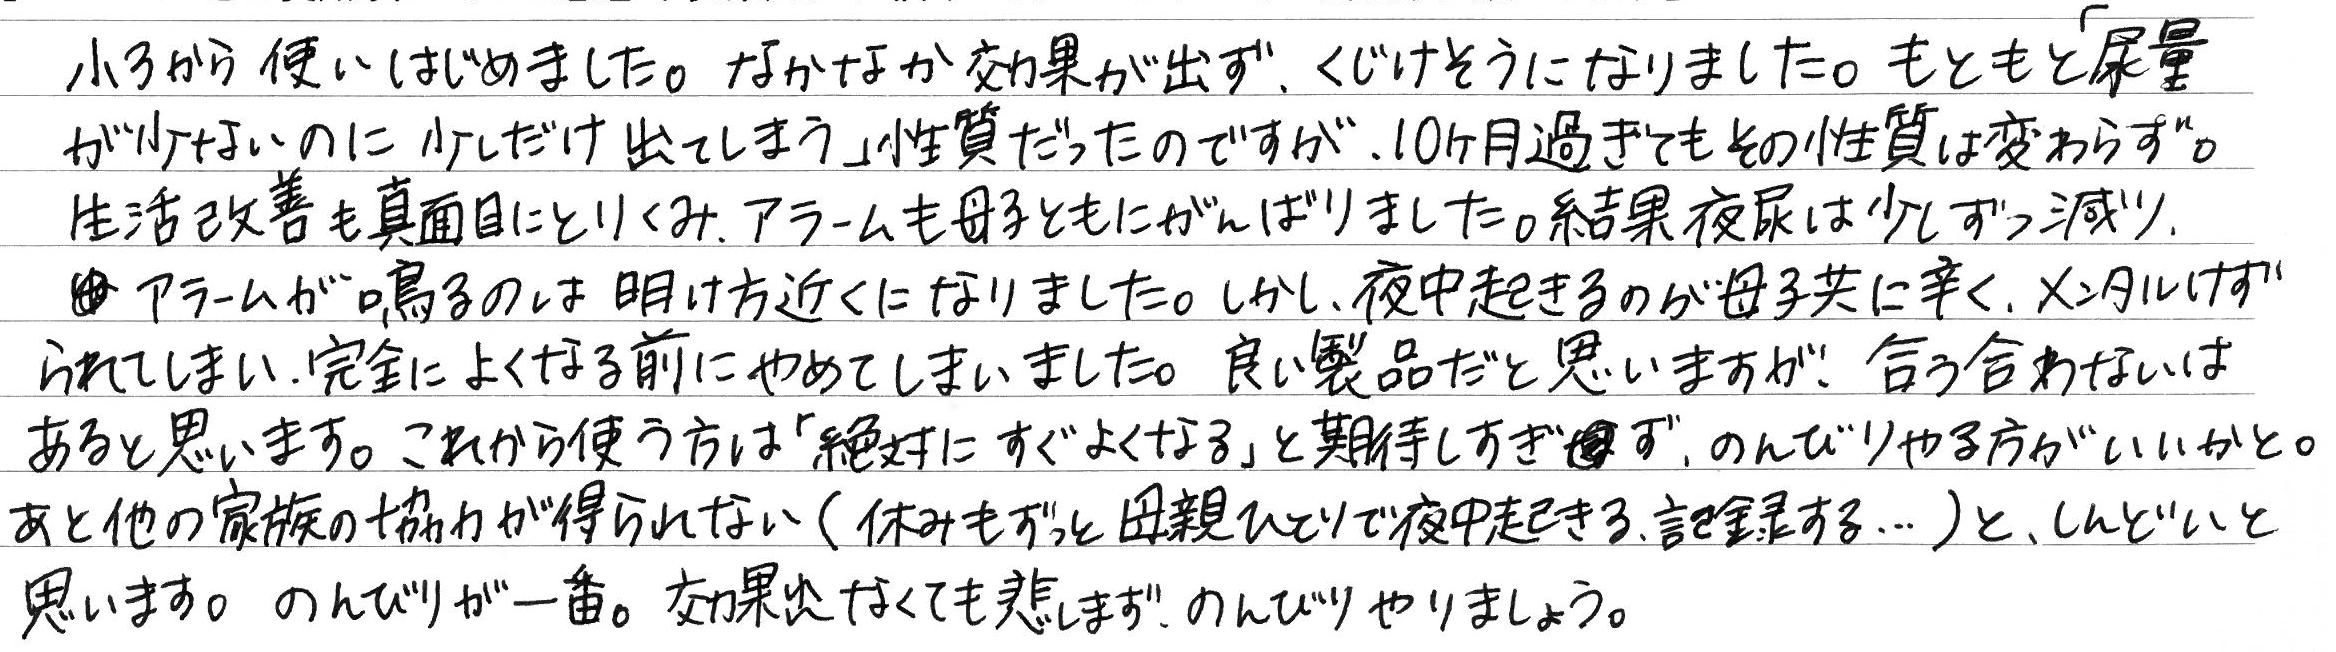 小3から使いはじめました。なかなか効果が出ず、くじけそうになりました。もともと「尿量
が少ないのに少しだけ出てしまう」性質だったのですが、10ヶ月過ぎてもその性質は変わらず。
生活改善も真面目にとりくみ、アラームも母子ともにがんばりました。結果夜尿は少しずつ減り、
アラームが鳴るのは明け方近くになりました。しかし、夜中起きるのが母子共に辛く、メンタルけず
られてしまい、完全によくなる前にやめてしまいました。良い製品だと思いますが、合う合わないは
あると思います。これから使う方は「絶対にすぐよくなる」と期待しすぎず、のんびりやる方がいいかと。
あと他の家族の協力が得られない(休みもずっと母親ひとりで夜中起きる、記録する…)と、しんどいと
思います。のんびりが一番。効果出なくても悲しまず、のんびりやりましょう。